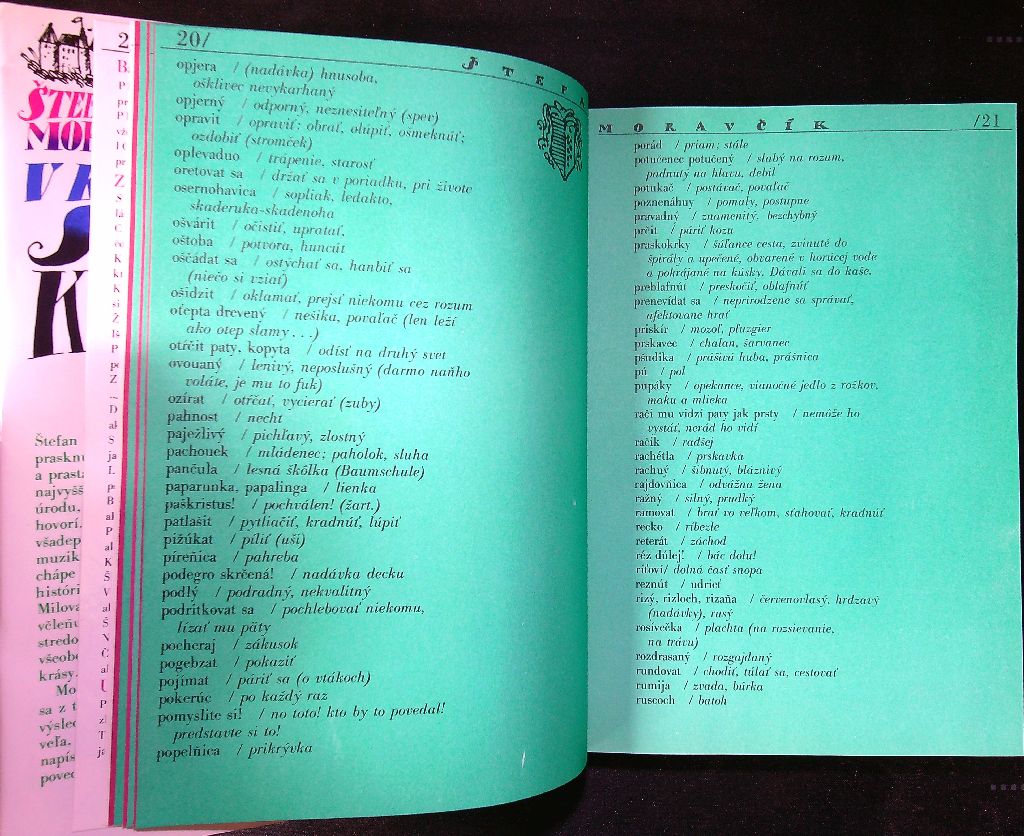 20/
ŠTEFA
opjera / (nadávka) hnusoba,
ošklivec nevykarhaný
opjerný / odporný, neznesiteľný (spev)
opravit / opraviť; obrať, olúpiť, ošmeknúť;
ozdobiť (stromček)
oplevaduo / trápenie, starosť
oretovat sa / držať sa v poriadku, pri živote
osernohavica / sopliak, ledakto,
skaderuka-skadenoha
ošvárit / očistiť, upratať,
oštoba / potvora, huncút
oščádat sa / ostýchať sa, hanbiť sa
(niečo si vziať)
ošidzit / oklamať, prejsť niekomu cez rozum
oťepta drevený / nešika, povaľač (len leží
ako otep slamy . . .)
otŕčit paty, kopyta / odísť na druhý svet
ovouaný / lenivý, neposlušný (darmo naňho
voláte, je mu to fuk)
ozírat / otŕčať, vycierať (zuby)
pahnost / necht
paježlivý / pichľavý, zlostný
pachouek / mládenec; paholok, sluha
pančula / lesná škôlka (Baumschule)
paparunka, papalinga / lienka
paškristus! / pochválen! (žart.)
patlašit / pytliačiť, kradnúť, lúpiť
pižúkat / píliť (uši)
píreňica / pahreba
podegro skrčená! / nadávka decku
podlý / podradný, nekvalitný
podrítkovat sa / pochlebovať niekomu,
lízať mu päty
pocheraj / zákusok
pogebzat / pokaziť
pojímat / páriť sa (o vtákoch)
pokerúc / po každý raz
pomyslite si! / no toto! kto by to povedal!
predstavte si to!
popelňica / prikrývka
MORAVČÍK
/21
porád / priam; stále
potučenec potučený / slabý na rozum,
padnutý na hlavu, debil
potukač / postávač, povaľač
poznenáhuy / pomaly, postupne
pravadný / znamenitý, bezchybný
prčit / páriť kozu
praskokrky / šúľance cesta, zvinuté do
špirály a upečené, obvarené v horúcej vode
a pokrájané na kúsky. Dávali sa do kaše.
preblafnút / preskočiť, oblafnúť
prenevídat sa / neprirodzene sa správať,
afektovane hrať
priskír / mozoľ, pľuzgier
prskavec / chalan, šarvanec
pšudika / prašivá huba, prášnica
pú / pol
pupáky / opekance, vianočné jedlo z rožkov,
maku a mlieka
rači mu vidzi paty jak prsty / nemôže ho
vystáť, nerád ho vidí
račik / radšej
rachétla / prskavka
rachuý / šibnutý, bláznivý
rajdovňica / odvážna žena
ražný / silný, prudký
ramovat / brať vo veľkom, sťahovať, kradnúť
recko / ríbezle
reterát / záchod
réz dúlej! / bác dolu!
riťovi/ dolná časť snopa
reznút / udrieť
rizý, rizloch, rizaňa / červenovlasý, hrdzavý
(nadávky), rusý
rosívečka / plachta (na rozsievanie,
na trávu)
rozdrasaný / rozgajdaný
rundovat / chodiť, túlať sa, cestovať
rumija / zvada, búrka
ruscoch / batoh
Štefan
prasknu
a prasta
najvyšš
úrodu,
hovorí,
všadep
muzik
chápe
históri
Milova
včleňu
stredo
všeobe
krásy.
Mo
sa z t
výsled
veľa.
napís
poved